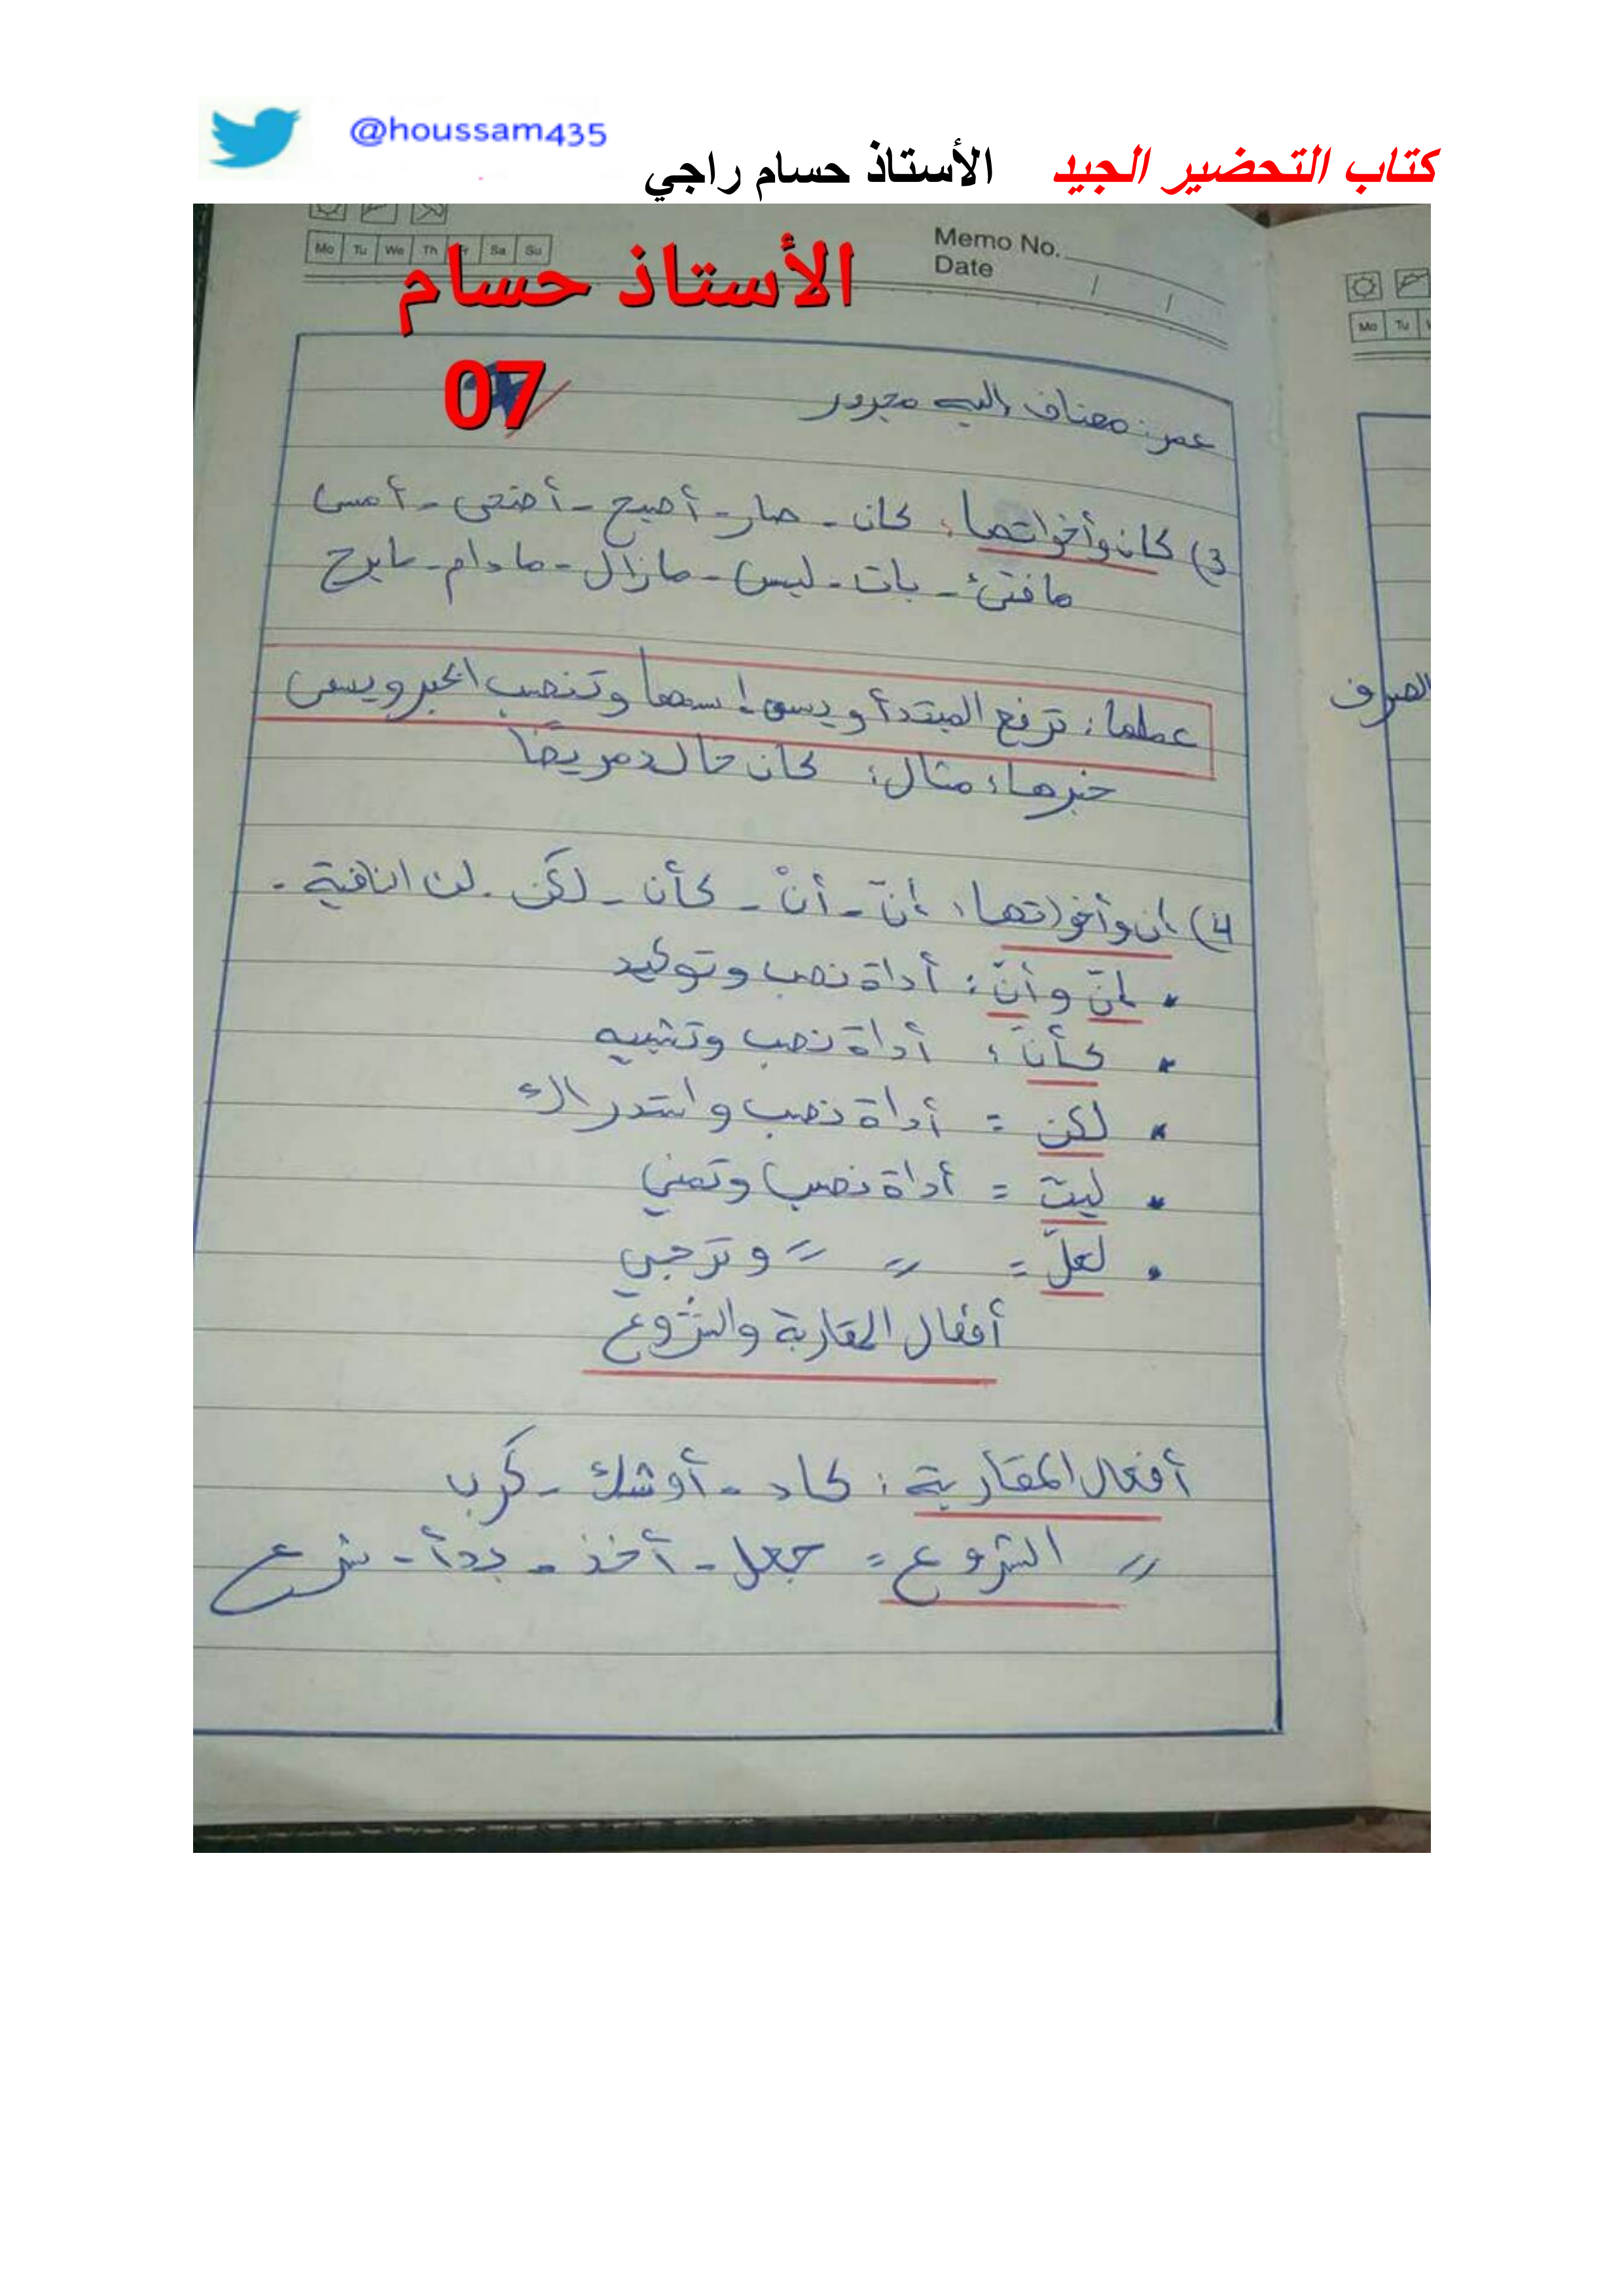 @houssam435
كتاب التحضير الجيد الأستاذ حسام راجي
Mo Tu We Th Fr Sa Su
Memo No.
Date / /
الأستاذ حسام
07
عمر: مضاف إليه مجرور
3) كان وأخواتها: كان - صار - أصبح - أضحى - أمسى
ما فتئ - بات - ليس - مازال - مادام - مابرح
عملها: ترفع المبتدأ ويسمى إسمها وتنصب الخبر ويسمى
خبرها، مثال: كان خالد مريضًا
4) إن وأخواتها: إنّ - أنْ - كأن - لكن - لن النافية.
• إنّ وأنّ: أداة نصب وتوكيد
• كأنّ: أداة نصب وتشبيه
• لكن = أداة نصب واستدراك
• ليت = أداة نصب وتمني
• لعلّ =〃 〃 وترجي
أفعال المقاربة والشروع
أفعال المقاربة: كاد - أوشك - كرب
〃 الشروع = جعل - أخذ - بدأ - شرع
Mo Tu
الصرف